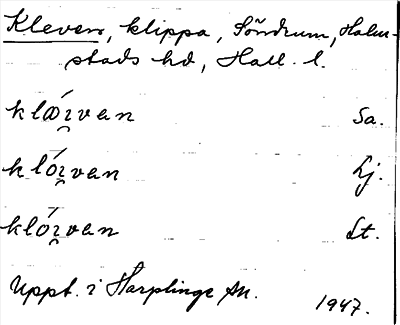 Kleven, klippa, Söndrum, Halm-
stads hd, Hall. l.
klǿi̯van Sa.
klói̯van Lj.
klói̯van Lt.
Uppt. i Harplinge sn. 1947.